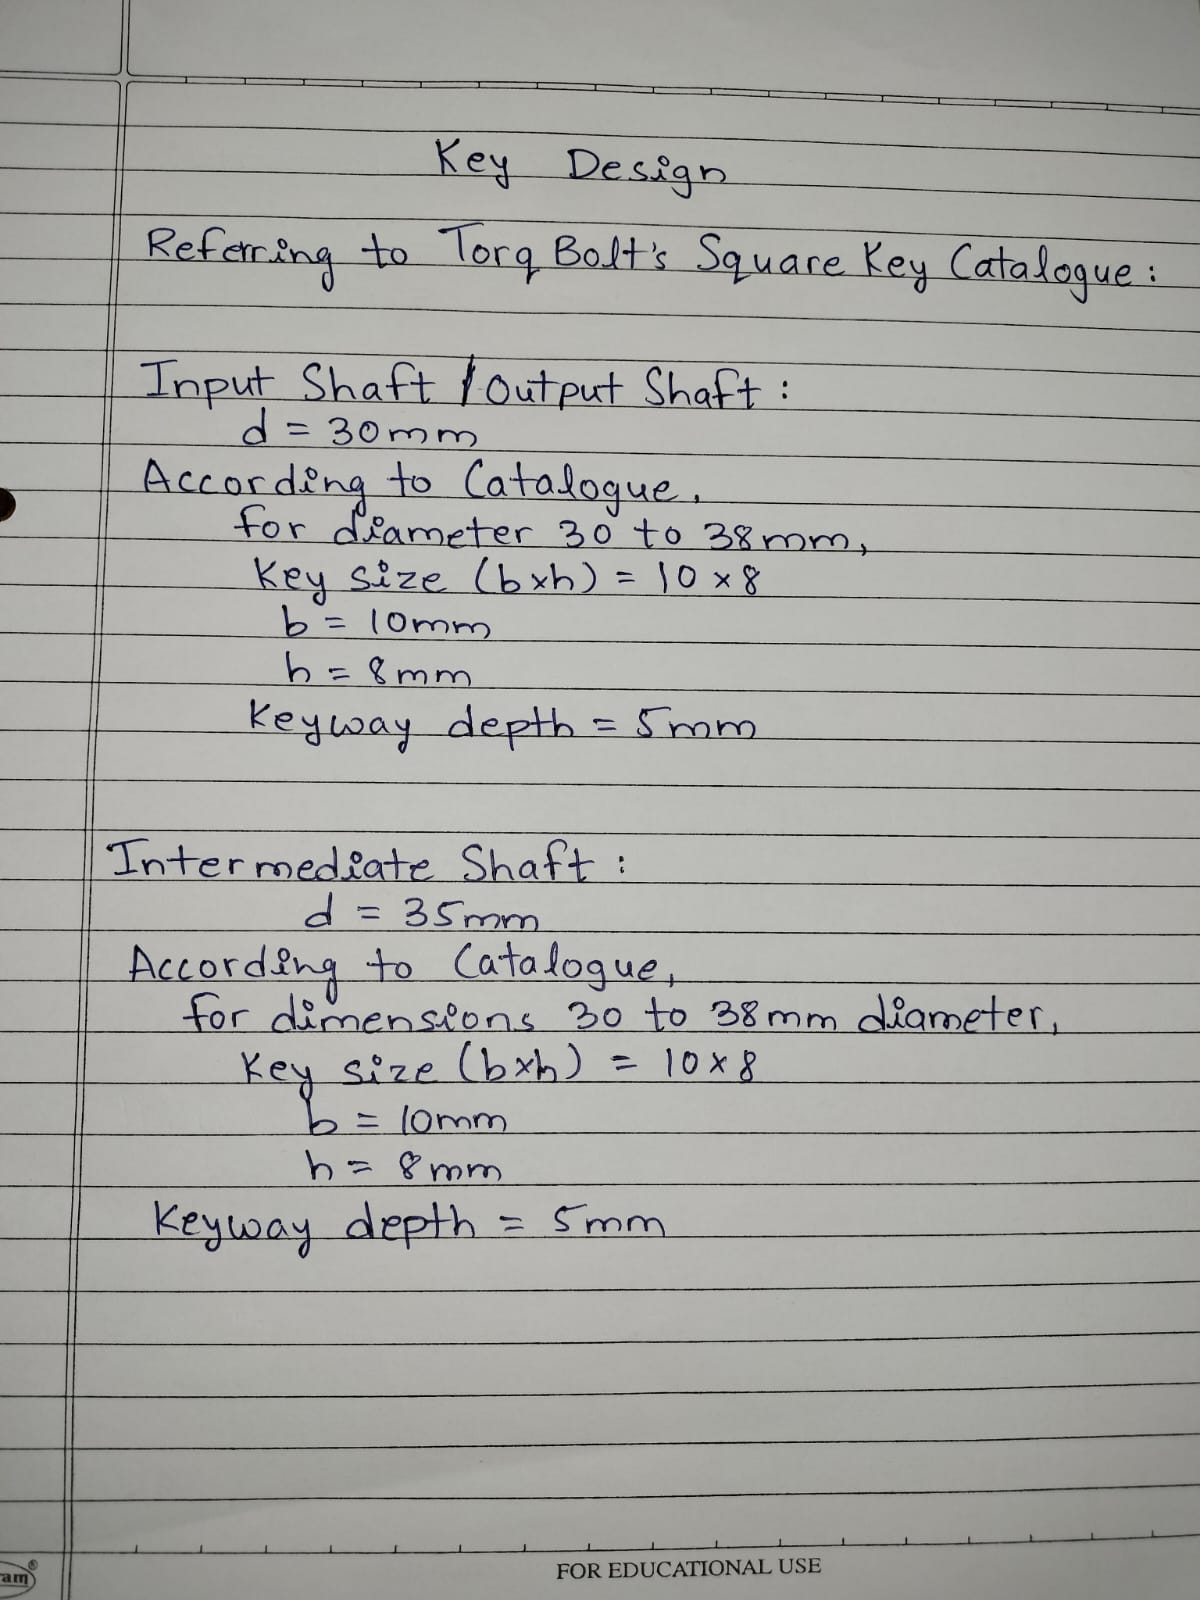 Key Design
Referring to Torq Bolt's Square Key Catalogue :
Input Shaft / Output Shaft :
d = 30mm
According to Catalogue,
for diameter 30 to 38mm,
Key size (b×h) = 10 × 8
b = 10mm
h = 8mm
Keyway depth = 5mm
Intermediate Shaft :
d = 35mm
According to Catalogue,
for dimensions 30 to 38mm diameter,
Key size (b×h) = 10 × 8
b = 10mm
h = 8mm
Keyway depth = 5mm
am®
FOR EDUCATIONAL USE